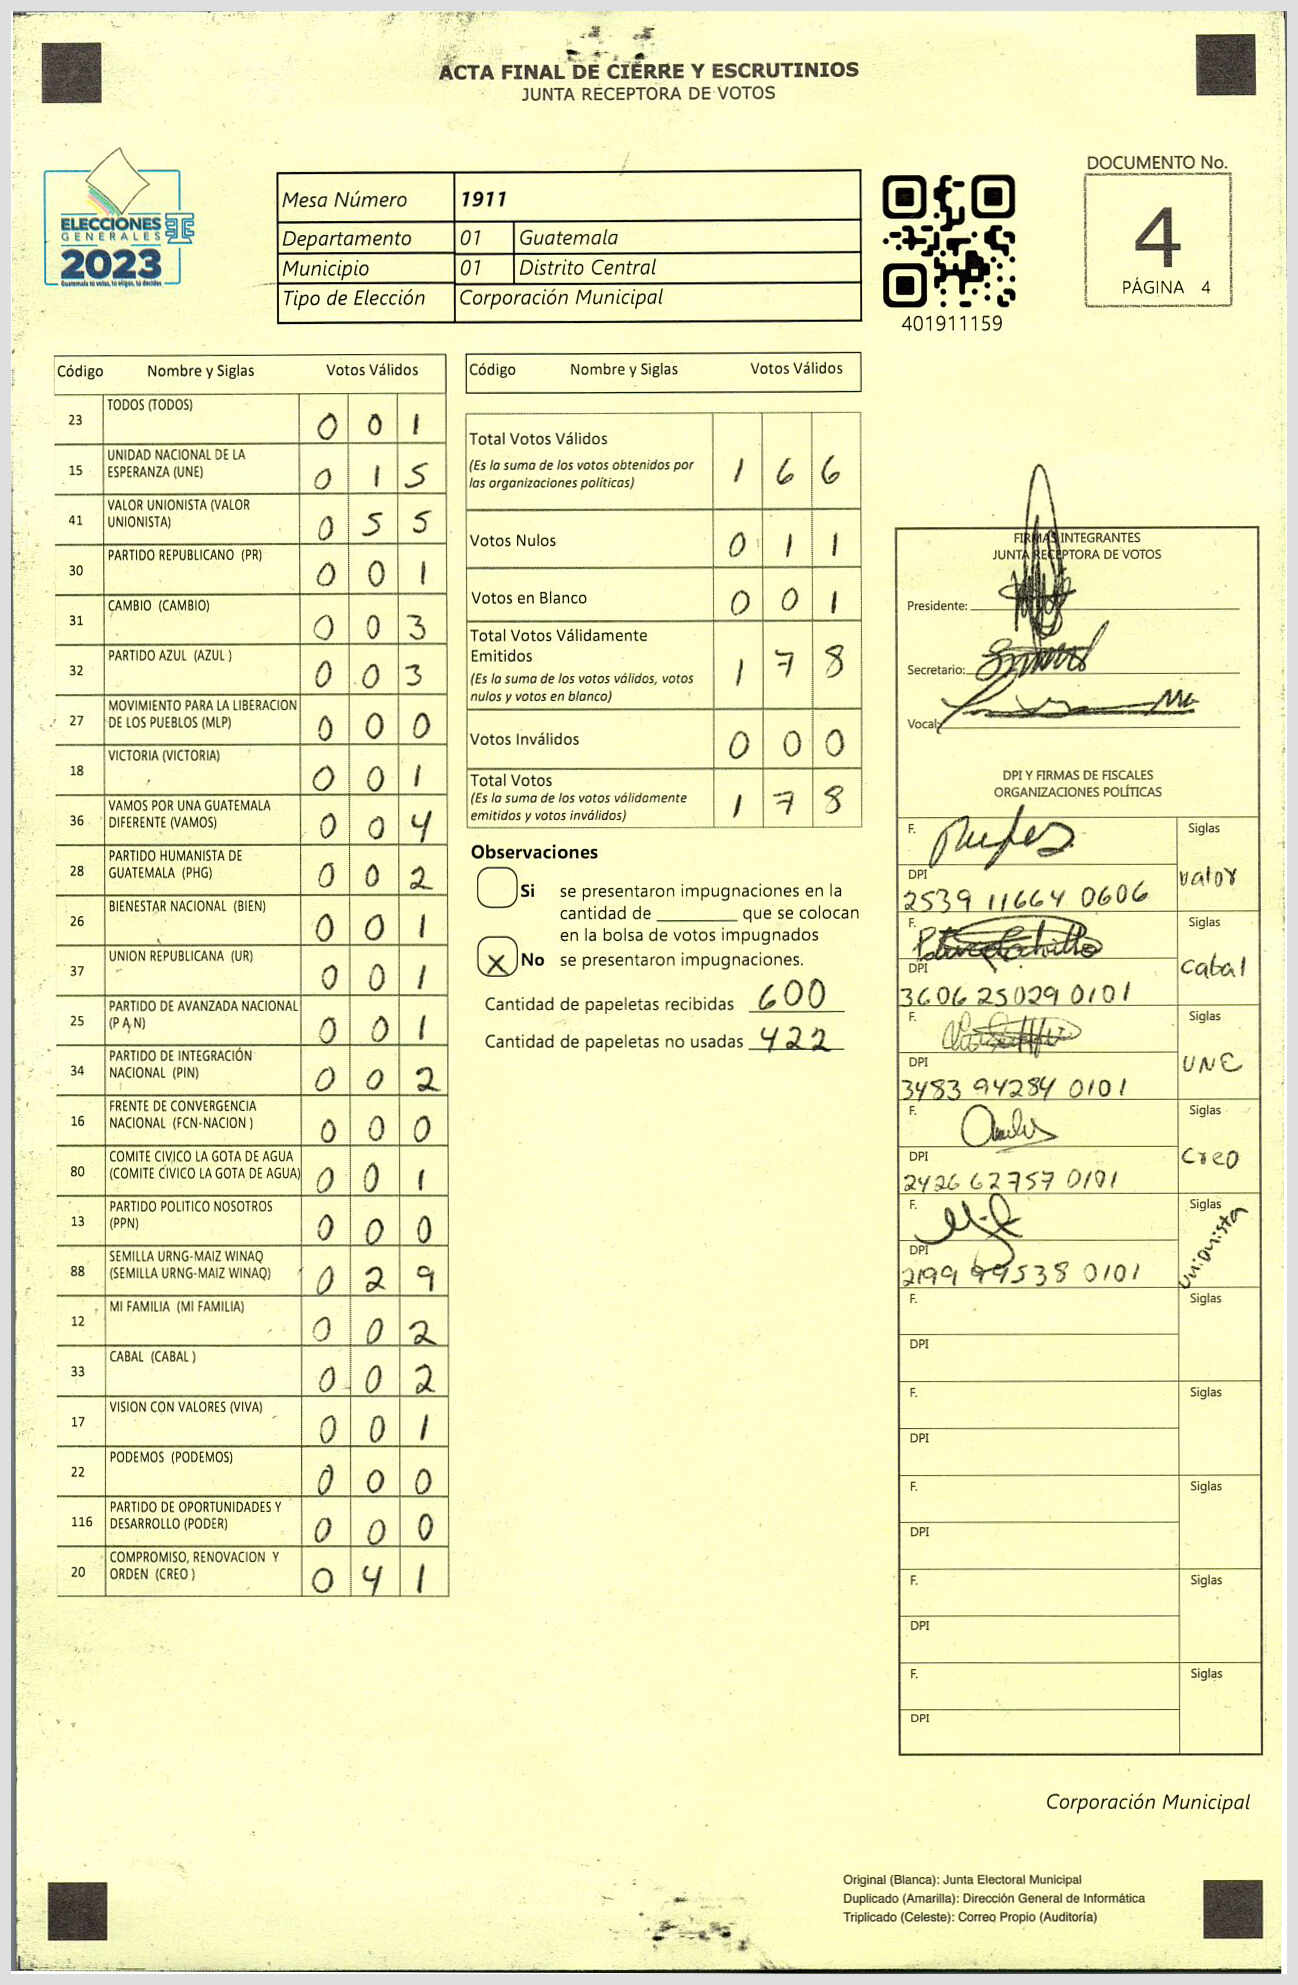 ACTA FINAL DE CIERRE Y ESCRUTINIOS
JUNTA RECEPTORA DE VOTOS
ELECCIONES
GENERALES
2023
Guatemala tú votas, tú eliges, tú decides
Mesa Número 1911
Departamento 01 Guatemala
Municipio 01 Distrito Central
Tipo de Elección Corporación Municipal
401911159
DOCUMENTO No.
4
PÁGINA 4
Código Nombre y Siglas Votos Válidos
23 TODOS (TODOS) 0 0 1
15 UNIDAD NACIONAL DE LA
ESPERANZA (UNE) 0 1 5
41 VALOR UNIONISTA (VALOR
UNIONISTA) 0 5 5
30 PARTIDO REPUBLICANO (PR) 0 0 1
31 CAMBIO (CAMBIO) 0 0 3
32 PARTIDO AZUL (AZUL ) 0 0 3
27 MOVIMIENTO PARA LA LIBERACION
DE LOS PUEBLOS (MLP) 0 0 0
18 VICTORIA (VICTORIA) 0 0 1
36 VAMOS POR UNA GUATEMALA
DIFERENTE (VAMOS) 0 0 4
28 PARTIDO HUMANISTA DE
GUATEMALA (PHG) 0 0 2
26 BIENESTAR NACIONAL (BIEN) 0 0 1
37 UNION REPUBLICANA (UR) 0 0 1
25 PARTIDO DE AVANZADA NACIONAL
(P A N) 0 0 1
34 PARTIDO DE INTEGRACIÓN
NACIONAL (PIN) 0 0 2
16 FRENTE DE CONVERGENCIA
NACIONAL (FCN-NACION ) 0 0 0
80 COMITE CIVICO LA GOTA DE AGUA
(COMITE CÍVICO LA GOTA DE AGUA) 0 0 1
13 PARTIDO POLITICO NOSOTROS
(PPN) 0 0 0
88 SEMILLA URNG-MAIZ WINAQ
(SEMILLA URNG-MAIZ WINAQ) 0 2 9
12 MI FAMILIA (MI FAMILIA) 0 0 2
33 CABAL (CABAL ) 0 0 2
17 VISION CON VALORES (VIVA) 0 0 1
22 PODEMOS (PODEMOS) 0 0 0
116 PARTIDO DE OPORTUNIDADES Y
DESARROLLO (PODER) 0 0 0
20 COMPROMISO, RENOVACION Y
ORDEN (CREO ) 0 4 1
Código Nombre y Siglas Votos Válidos
Total Votos Válidos
(Es la suma de los votos obtenidos por
las organizaciones políticas) 1 6 6
Votos Nulos 0 1 1
Votos en Blanco 0 0 1
Total Votos Válidamente
Emitidos
(Es la suma de los votos válidos, votos
nulos y votos en blanco) 1 7 8
Votos Inválidos 0 0 0
Total Votos
(Es la suma de los votos válidamente
emitidos y votos inválidos) 1 7 8
Observaciones
Si se presentaron impugnaciones en la
cantidad de ________ que se colocan
en la bolsa de votos impugnados
X No se presentaron impugnaciones.
Cantidad de papeletas recibidas 600
Cantidad de papeletas no usadas 422
FIRMAS INTEGRANTES
JUNTA RECEPTORA DE VOTOS
Presidente:
Secretario:
Vocal:
DPI Y FIRMAS DE FISCALES
ORGANIZACIONES POLÍTICAS
F. Siglas
DPI valor
2539 11664 0606
F. Siglas
DPI Cabal
3606 25029 0101
F. Siglas
DPI UNE
3483 94284 0101
F. Siglas
DPI Creo
2426 62757 0101
F. Siglas
DPI unionista
2199 99538 0101
F. Siglas
DPI
F. Siglas
DPI
F. Siglas
DPI
F. Siglas
DPI
F. Siglas
DPI
Corporación Municipal
Original (Blanca): Junta Electoral Municipal
Duplicado (Amarilla): Dirección General de Informática
Triplicado (Celeste): Correo Propio (Auditoría)